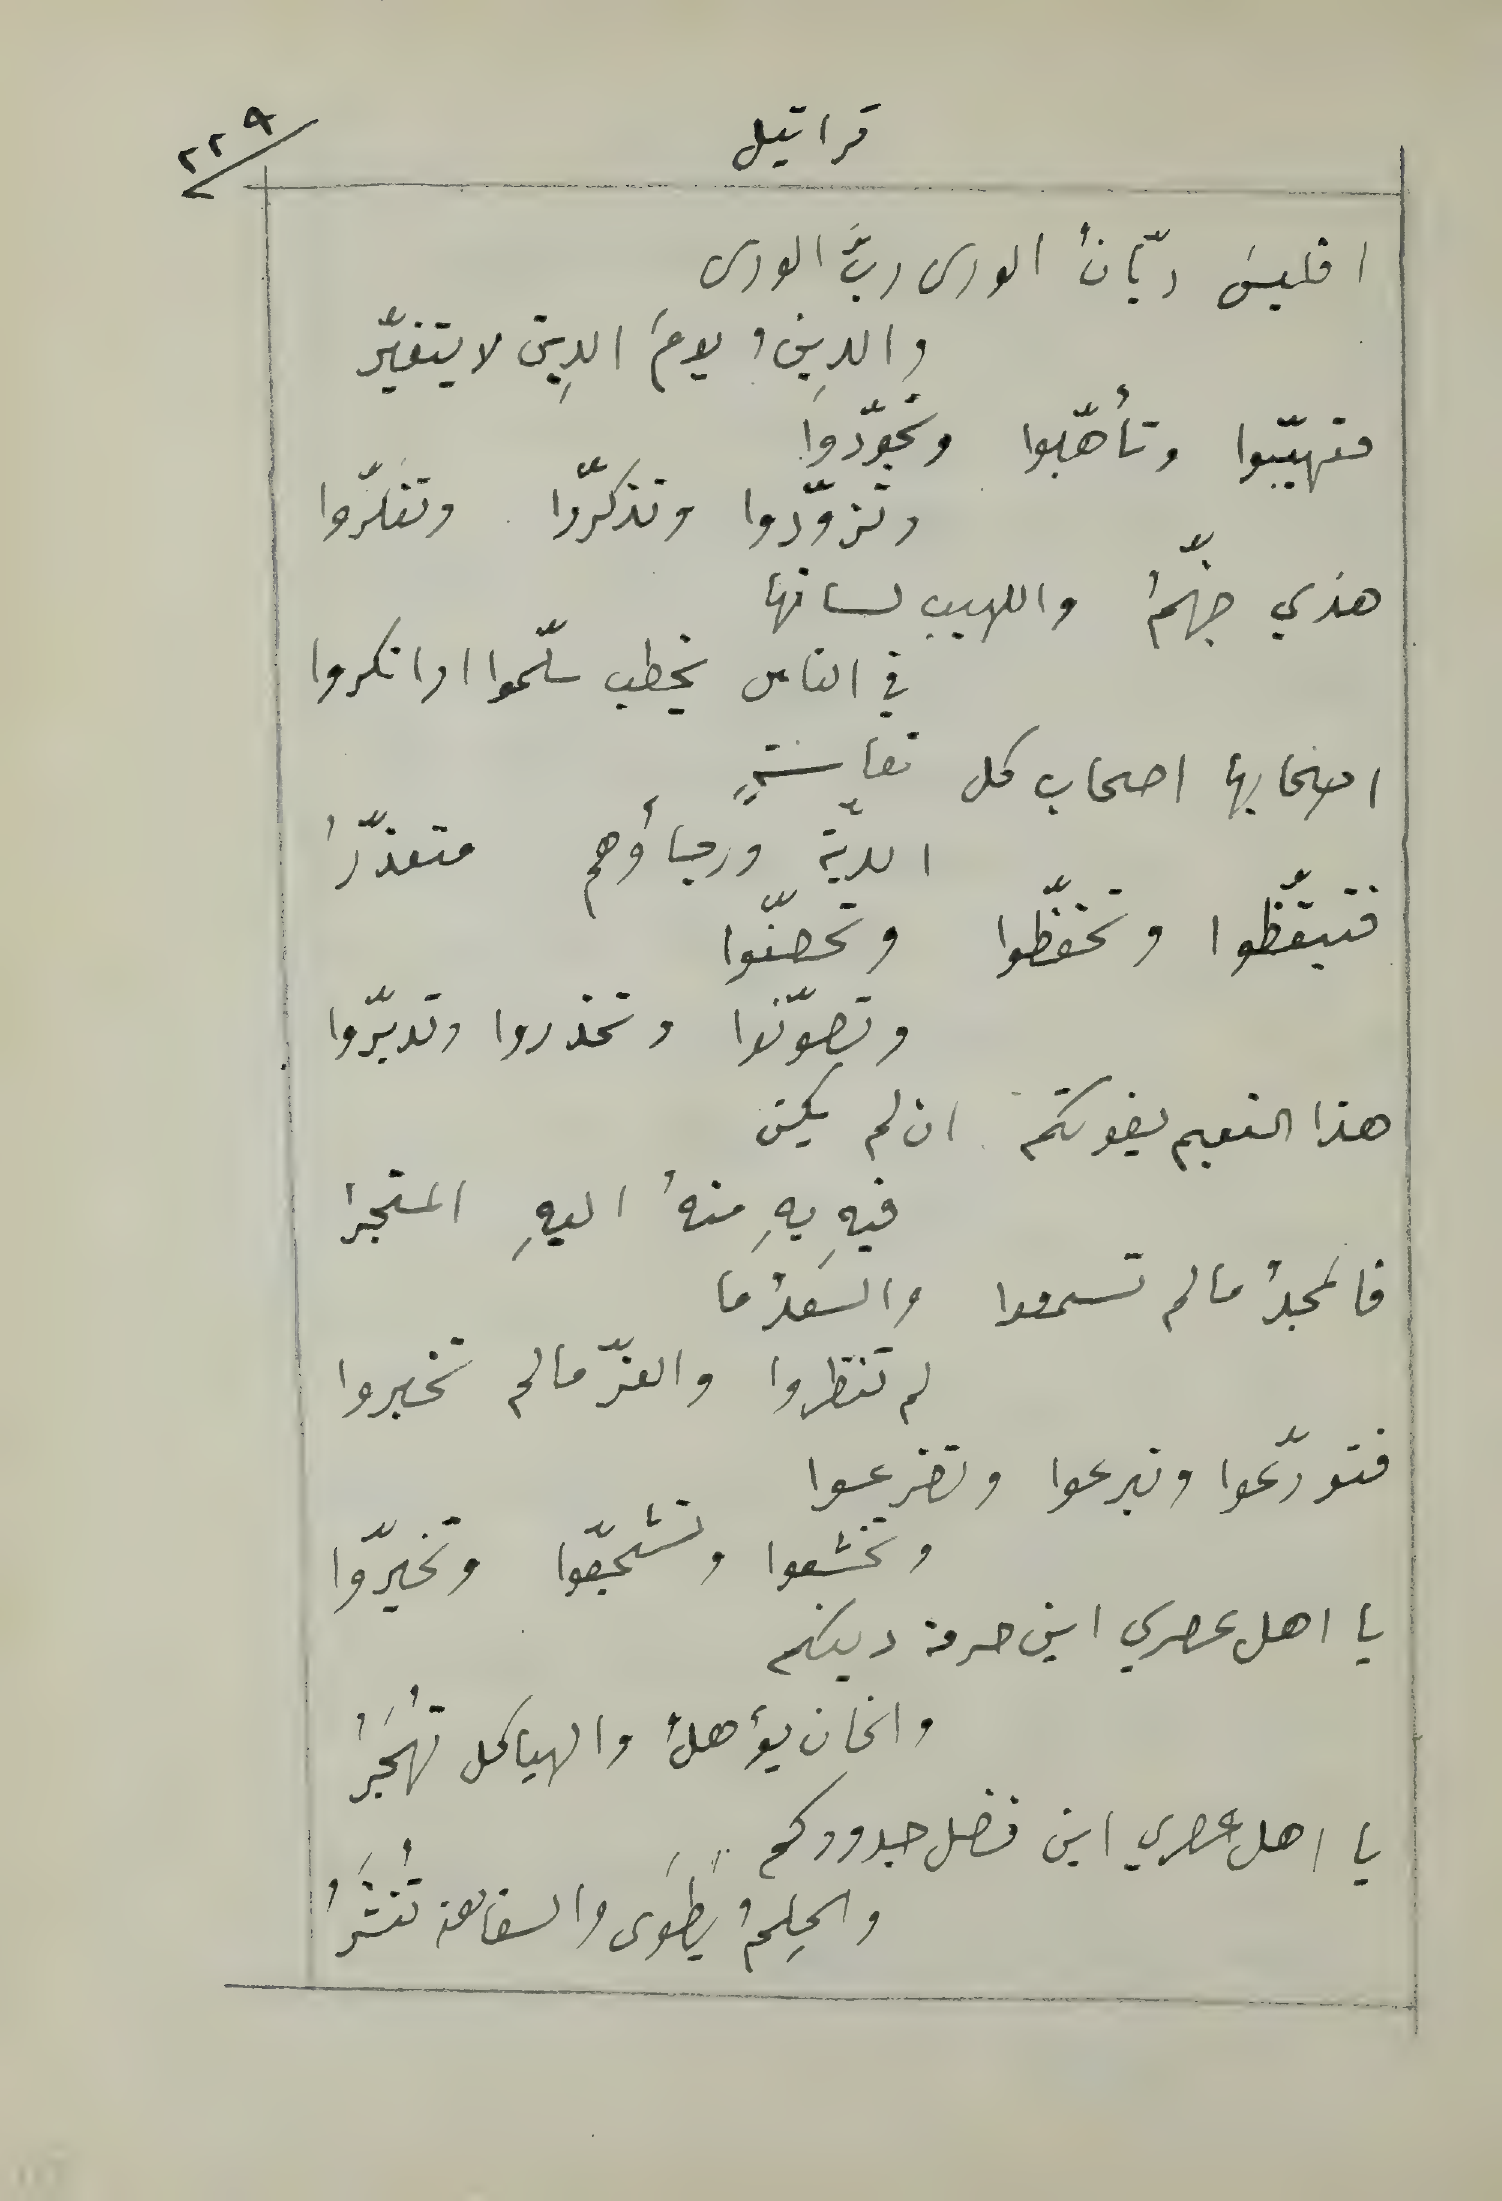 تراتيل
٢٢٩
افليسَ ديّانُ الورى ربَّ الورى
والدِينُ يومَ الدِين لا يتغيّر
فتهيّبوا وتأهّبوا وتجوّدوا
وتزوّدوا وتذكرّوا وتفكرّوا
هذي جهنّمُ واللهيب لسانها
في الناس يخطب سلّموا او انكروا
اصحابها اصحاب كل تعاسةٍ
ابديّة ورجاؤهم متعذّرُ
فتيقّظوا وتحفّظوا وتحصنّوا
وتصوّنوا وتحذروا وتدبرّوا
هذا النعيم يفوتكم ان لم يكن
فيهِ بهِ منهُ اليهِ المتجرُ
فالمجدُ ما لم تسمعوا والسَعدُ ما
لم تنظروا والعزّ ما لم تخبروا
فتورّعوا وتبرعوا وتضرعوا
وتخشعوا وتشجّعوا وتخيرّوا
يا اهل عصري اين حرمة دينكم
والخان يؤهلُ والهياكل تُهجَرُ
يا اهل عصري اين فضل جدودكم
والحِلمُ يُطوَى والسفاهة تُنشَرُ